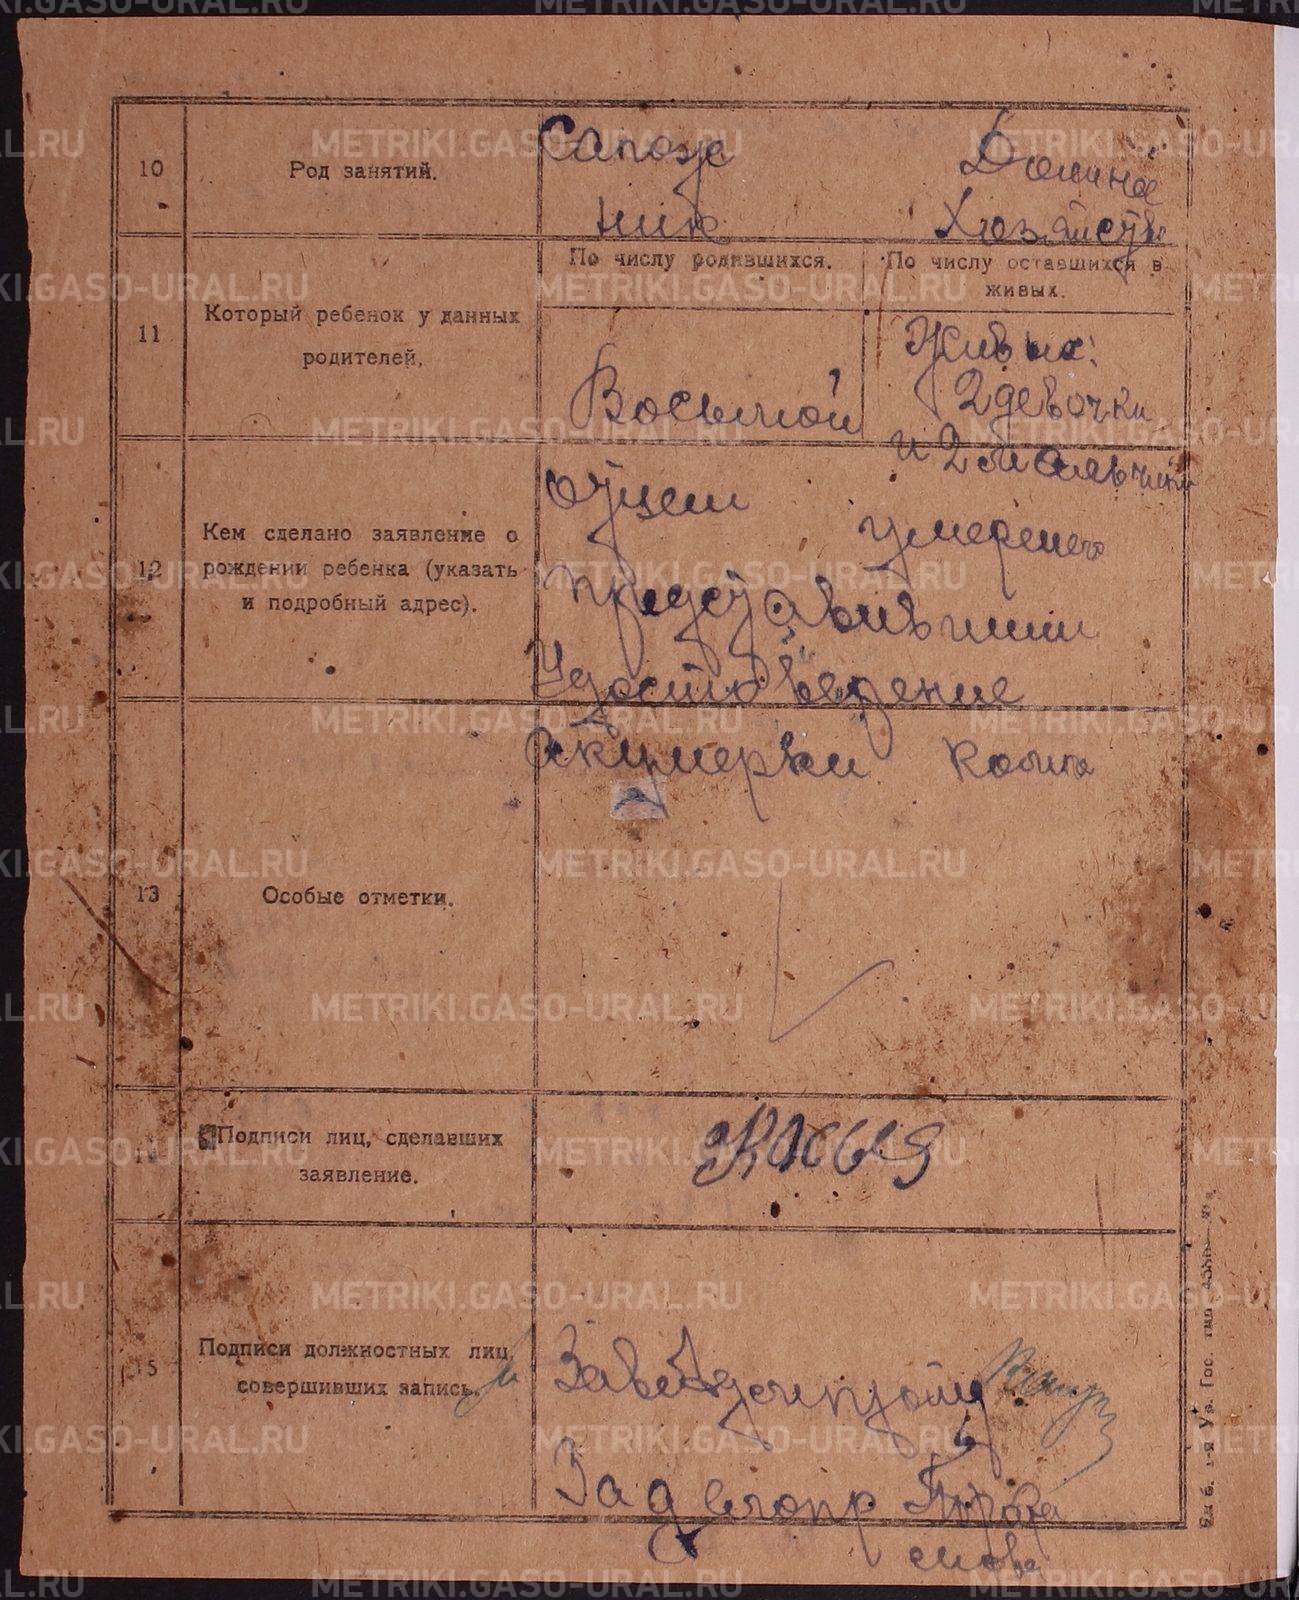 10
Род занятий.
Сапож
ник
Домашнее
Хозяйств
11
Который ребенок у данных
родителей,
По числу родившихся.
По числу оставшихся в
живых.
Восьмой
Живых:
2 девочки
и 2 мальчик
12
Кем сделано заявление о
рождении ребенка (указать
и подробный адрес).
отцем
предъявившим
Удостоведение
акушерки
13
Особые отметки.
Подписи лиц, сделавших
заявление.
15
Подписи должностных лиц,
совершивших запись.
Зав
За делопр
METRIKI.GASO-URAL.RU